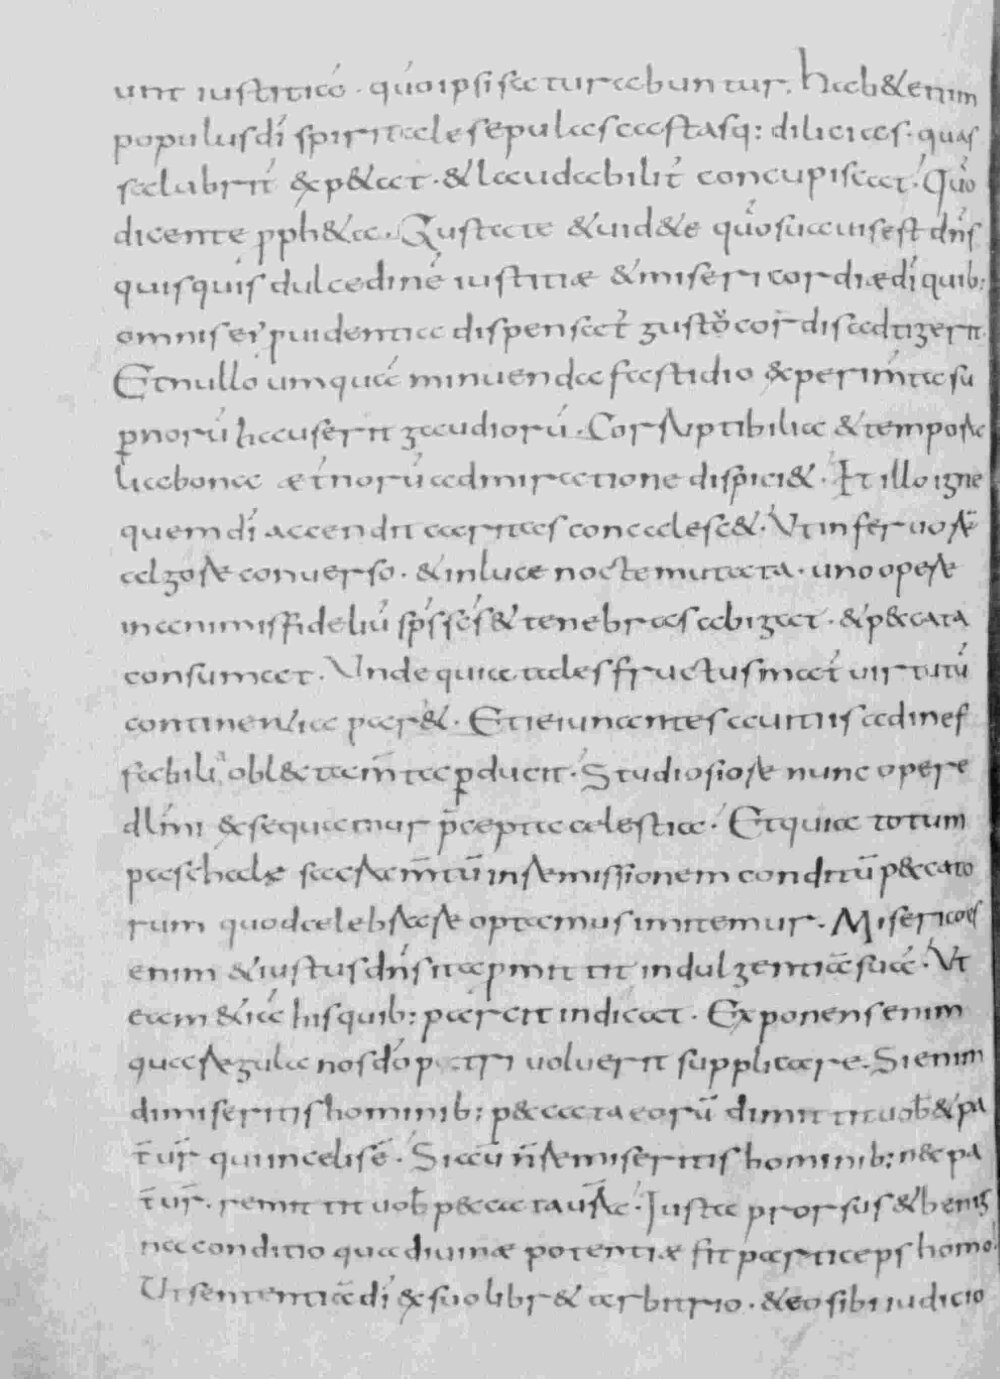 unt iustitiā · qūo ipsi saturabuntur. Hab& enim
populus dī spiritales epulas castasq: dilicias · quas
salubrit̄ &xp&at · & laudabilit̄ concupiscat. Qūo
dicente pph&a. Gustate & uid&e qūo suauis est dn̄s
quisquis dulcedinē iustitiæ & misericordiæ dī quib:
omnis ei puidentia dispensat̄ gusto cordis adtigerit.
Et nullo umquā minuenda fastidio &xperim̄ta su
pnorū hauserit gaudiorū. Corruptibilia & tempora
lia bona æt̄norū admiratione dispici&. Et illo igne
quem dī accendit caritas concalesc&. Ut in feruore
algore conuerso · & in luce nocte mutata · uno opere
in animis fideliū sp̄s sc̄s & tenebras abigat · & p&cata
consumat. Unde quia ad es fructus mat̄ uirtutū
continentia par&. Et ieiunantes a uitiis ad inef
fabilia obl&tam̄ta pducit. Studiosiore nunc opere
&xsequamur p̄cepta celestia. Et quia totum
paschale sacram̄tū in remissionem conditū p&cato
rum quod celebrare optamus imitemur. Misericors
enim & iustus dn̄s ita pmittit indulgentiā suā. Ut
eam & iā his quib: parcit indicat. Exponens enim
qua regula nos dō patri uoluerit supplicare. Si enim
dimiseritis hominib: p&cata eorū dimittit uob̄ & pa
t̄ ur̄ qui in celis ē. Si aū n̄ remiseritis hominib: n&c pa
t̄ ur̄. remittit uob̄ p&cata ur̄a. Iusta prorsus & benig
na conditio qua diuinæ potentiæ fit particeps homo.
Ut sententiā dī &x suo libr& arbitrio · & eo sibi iudicio